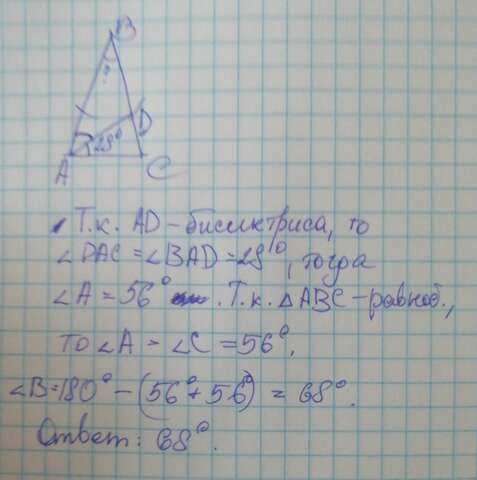 B
?
D
28°
A
C
Т.к. AD - биссиктриса, то
∠DAC = ∠BAD = 28°, тогда
∠A = 56°. Т.к. △ABC - равноб.,
то ∠A = ∠C = 56°.
∠B = 180° - (56° + 56°) = 68°.
Ответ: 68°.